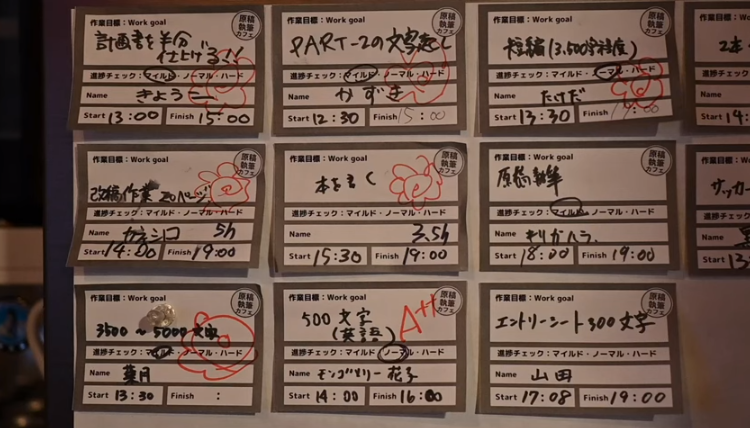 作業目標：Work goal
原稿執筆カフェ
計画書を半分
仕上げる!!
進捗チェック：マイルド・ノーマル・ハード
Name きょうこ
Start 13:00 Finish 15:00
作業目標：Work goal
原稿執筆カフェ
PART-2の文字起し
進捗チェック：マイルド・ノーマル・ハード
Name かずき
Start 12:30 Finish 15:00
作業目標：Work goal
原稿執筆カフェ
短編(3,500字程度)
進捗チェック：マイルド・ノーマル・ハード
Name たけだ
Start 13:30 Finish 19:00
作業
2本
進捗
Name
Start 14:
作業目標：Work goal
原稿執筆カフェ
改稿作業 20ページ
進捗チェック：マイルド・ノーマル・ハード
Name カネシロ 5h
Start 14:00 Finish 19:00
作業目標：Work goal
原稿執筆カフェ
本を書く
進捗チェック：マイルド・ノーマル・ハード
Name 3.5h
Start 15:30 Finish 19:00
作業目標：Work goal
原稿執筆カフェ
原稿執筆
進捗チェック：マイルド・ノーマル・ハード
Name
Start 18:00 Finish 19:00
作業目
サッカー
進捗チ
Name
Start 13:
作業目標：Work goal
原稿執筆カフェ
3500〜5000文字
進捗チェック：マイルド・ノーマル・ハード
Name 葉月
Start 13:30 Finish :
作業目標：Work goal
原稿執筆カフェ
500文字
(英語)
A++
進捗チェック：マイルド・ノーマル・ハード
Name モンゴメリー花子
Start 14:00 Finish 16:00
作業目標：Work goal
原稿執筆カフェ
エントリーシート300文字
進捗チェック：マイルド・ノーマル・ハード
Name 山田
Start 17:08 Finish 19:00